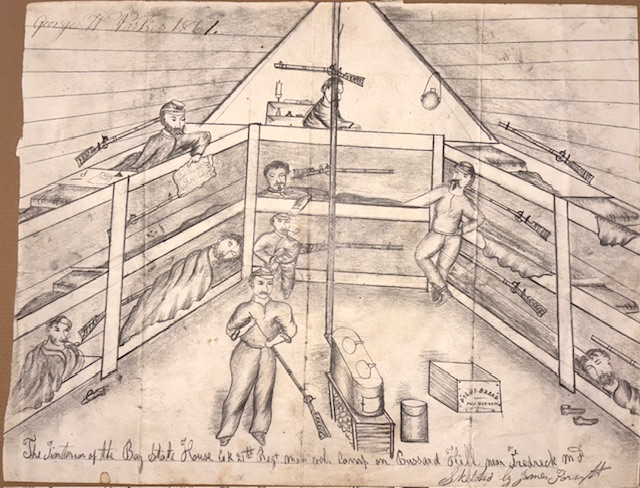 George W 1861.
PILOT BREAD
The Interior of the Bay State House Co K Regt vol. Camp on Bussard Hill near Fredreck Md
Sketched by James Forsyth